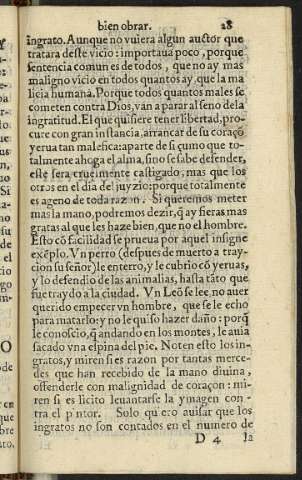 bien obrar. 28
ingrato. Aunque no vuiera algun auctor que
tratara deste vicio: importaua poco, porque
sentencia comun es de todos, que no ay mas
maligno vicio en todos quantos ay, que la ma
licia humana. Porque todos quantos males se
cometen contra Dios, van a parar al seno dela
ingratitud. El que quisiere tener libertad, pro-
cure con gran instancia, arrancar de su coraçõ
yerua tan malefica: aparte de si çumo que to-
talmente ahoga el alma, sino se sabe defender,
este sera cruelmente castigado, mas que los
otros en el dia del juyzio: porque totalmente
es ageno de toda razon. Si queremos meter
mas la mano, podremos dezir, q̃ ay fieras mas
gratas al que les haze bien, que no el hombre.
Esto cõ facilidad se prueua por aquel insigne
exẽplo. Vn perro (despues de muerto a tray-
cion su señor) le enterro, y le cubrio cõ yeruas,
y lo defendio de las animalias, hasta tãto que
fue traydo a la ciudad. Vn Leõ se lee, no auer
querido empecer vn hombre, que se le echo
para matarlo: y no le quiso hazer daño: porq̃
le conoscio, q̃ andando en los montes, le auia
sacado vna espina del pie. Noten esto los in-
gratos, y miren si es razon por tantas merce-
des que han recebido de la mano diuina,
offenderle con malignidad de coraçon: mi-
ren si es licito leuantarse la ymagen con-
tra el pintor. Solo quiero auisar que los
ingratos no son contados en el numero de
D 4 la